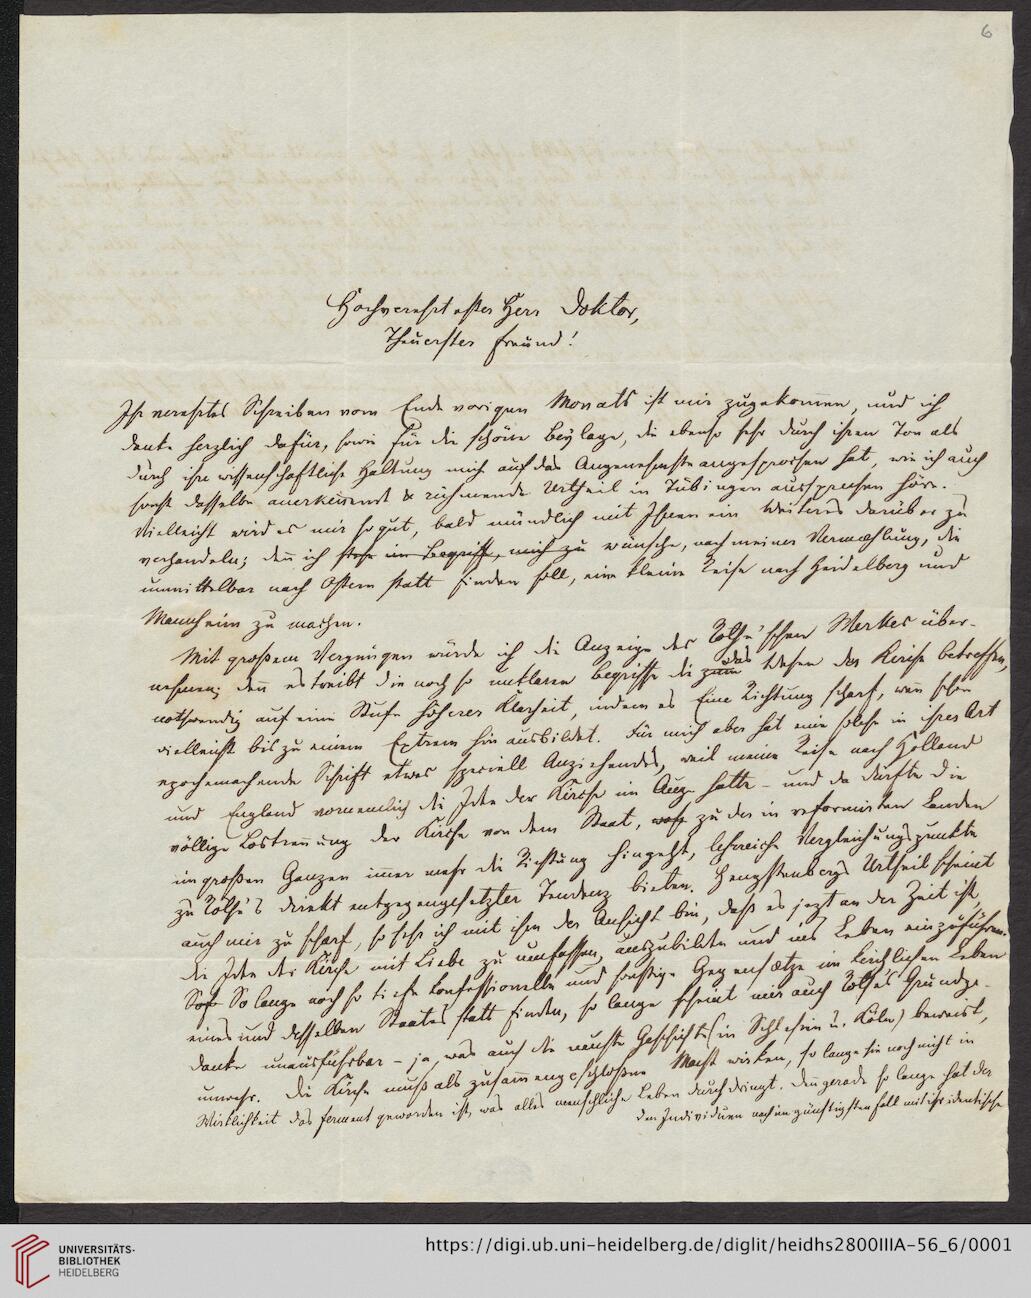 6
Hochverehrtester Herr Doktor,
Theuerster Freund!
Ihr verehrtes Schreiben vom Ende vorigen Monats ist mir zugekommen, und ich
danke herzlich dafür, sowie für die schöne Beylage, die ebenso sehr durch ihren Ton als
durch ihre wissenschaftliche Haltung mich auf das Angenehmste angesprochen hat, wie ich auch
sonst dasselbe anerkennende & rühmende Urtheil in Tübingen aussprechen höre.
Vielleicht wird es mir so gut, bald mündlich mit Ihnen ein Weiteres darüber zu
verhandeln; denn ich stehe im Begriff, mich zu wünsche, nach meiner Vermæhlung, die
unmittelbar nach Ostern statt finden soll, eine kleine Reise nach Heidelberg und
Mannheim zu machen.
Mit großem Vergnügen würde ich die Anzeige des Rothe'schen Werkes über-
nehmen; denn es treibt die noch so unklaren Begriffe die zum das Wesen der Kirche betreffen,
nothwendig auf eine Stufe höherer Klarheit, indem es Eine Richtung scharf, wenn schon
vielleicht bis zu einem Extrem hin ausbildet. Für mich aber hat eine solche in ihrer Art
epochemachende Schrift etwas speciell Anziehendes, weil meine Reise nach Holland
und England vornemlich die Idee der Kirche im Auge hatte – und da dürfte die
völlige Lostrennung der Kirche von dem Staat, zu der in reformirten Landen
im großen Ganzen immer mehr die Richtung hingeht, lehrreiche Vergleichungspunkte
zu Rothe's direkt entgegengesetzter Tendenz bieten. Hengstenbergs Urtheil scheint
auch mir zu scharf, so sehr ich mit ihm der Ansicht bin, daß es jezt an der Zeit ist,
die Idee der Kirche mit Liebe zu umfassen, auszubilden und ins Leben einzuführen.
So lange noch so tiefe konfessionelle und sonstige Gegensætze im kirchlichen Leben
eines und desselben Staates statt finden, so lange scheint mir auch Rothe's Grundge-
danke unausführbar – ja, was auch die neuste Geschichte (in Schlesien u. Köln) beweist,
unwahr. Die Kirche muß als zusammengeschloßene Macht wirken, so lange sie noch nicht in
Wirklichkeit das Ferment geworden ist, was alles menschliche Leben durchdringt. Denn gerade so lange hat der
den Individuen noch im günstigsten Fall mit ihr identische
UNIVERSITÄTS-
BIBLIOTHEK
HEIDELBERG
https://digi.ub.uni-heidelberg.de/diglit/heidhs2800IIIA-56_6/0001